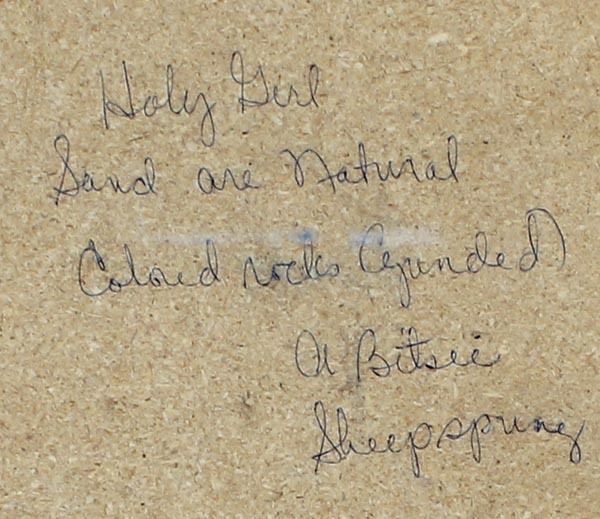 Holy Girl
Sand are Natural
Colored rocks (grunded)
A Bitsii
Sheepspring